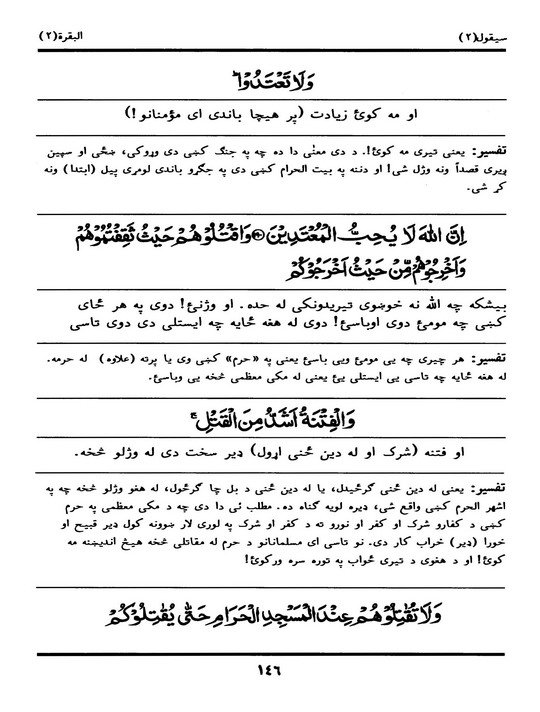 سيقول(۲)
البقرة(۲)
وَلَا تَعْتَدُوْا ؕ
او مه کوئ زيادت (پر هيچا باندی ای مؤمنانو!)
تفسير: يعنی تيری مه کوئ!. د دی معنٰی دا ده چه په جنگ کښی دی وړوکی، ښځی او سپين
ږيری قصداً ونه وژل شی! او دننه په بيت الحرام کښی دی په جګړو باندی لومړی پيل (ابتدا) ونه
کړ شی.
اِنَّ اللهَ لَا يُحِبُّ الْمُعْتَدِيْنَ ۝ وَاقْتُلُوْهُمْ حَيْثُ ثَقِفْتُمُوْهُمْ
وَاَخْرِجُوْهُمْ مِّنْ حَيْثُ اَخْرَجُوْكُمْ
بيشکه چه الله نه خوښوی تيريدونکی له حده. او وژنئ! دوی په هر ځای
کښی چه مومئ دوی اوباسئ! دوی له هغه ځايه چه ايستلی دی دوی تاسی
تفسير: هر چيری چه يی مومئ ويی باسئ يعنی په «حرم» کښی وی يا پرته (علاوه) له حرمه.
له هغه ځايه چه تاسی يی ايستلی يئ يعنی له مکی معظمی څخه يی وباسئ.
وَالْفِتْنَةُ اَشَدُّ مِنَ الْقَتْلِ ۚ
او فتنه (شرک او له دين څنی اړول) ډير سخت دی له وژلو څخه.
تفسير: يعنی له دين څنی ګرځيدل، يا له دين څنی د بل چا ګرځول، له هغو وژلو څخه چه په
اشهر الحرم کښی واقع شی، ډيره لويه ګناه ده. مطلب ئی دا دی چه د مکی معظمی په حرم
کښی د کفارو شرک او کفر او نورو ته د کفر او شرک په لوری لار ښوونه کول ډير قبيح او
خورا (ډير) خراب کار دی. نو تاسی ای مسلمانانو د حرم له مقاتلی څخه هيڅ انديښنه مه
کوئ! او د هغوی د تيری ځواب په توره سره ورکوئ!
وَلَا تُقٰتِلُوْهُمْ عِنْدَ الْمَسْجِدِ الْحَرَامِ حَتّٰى يُقٰتِلُوْكُمْ
۱٤٦